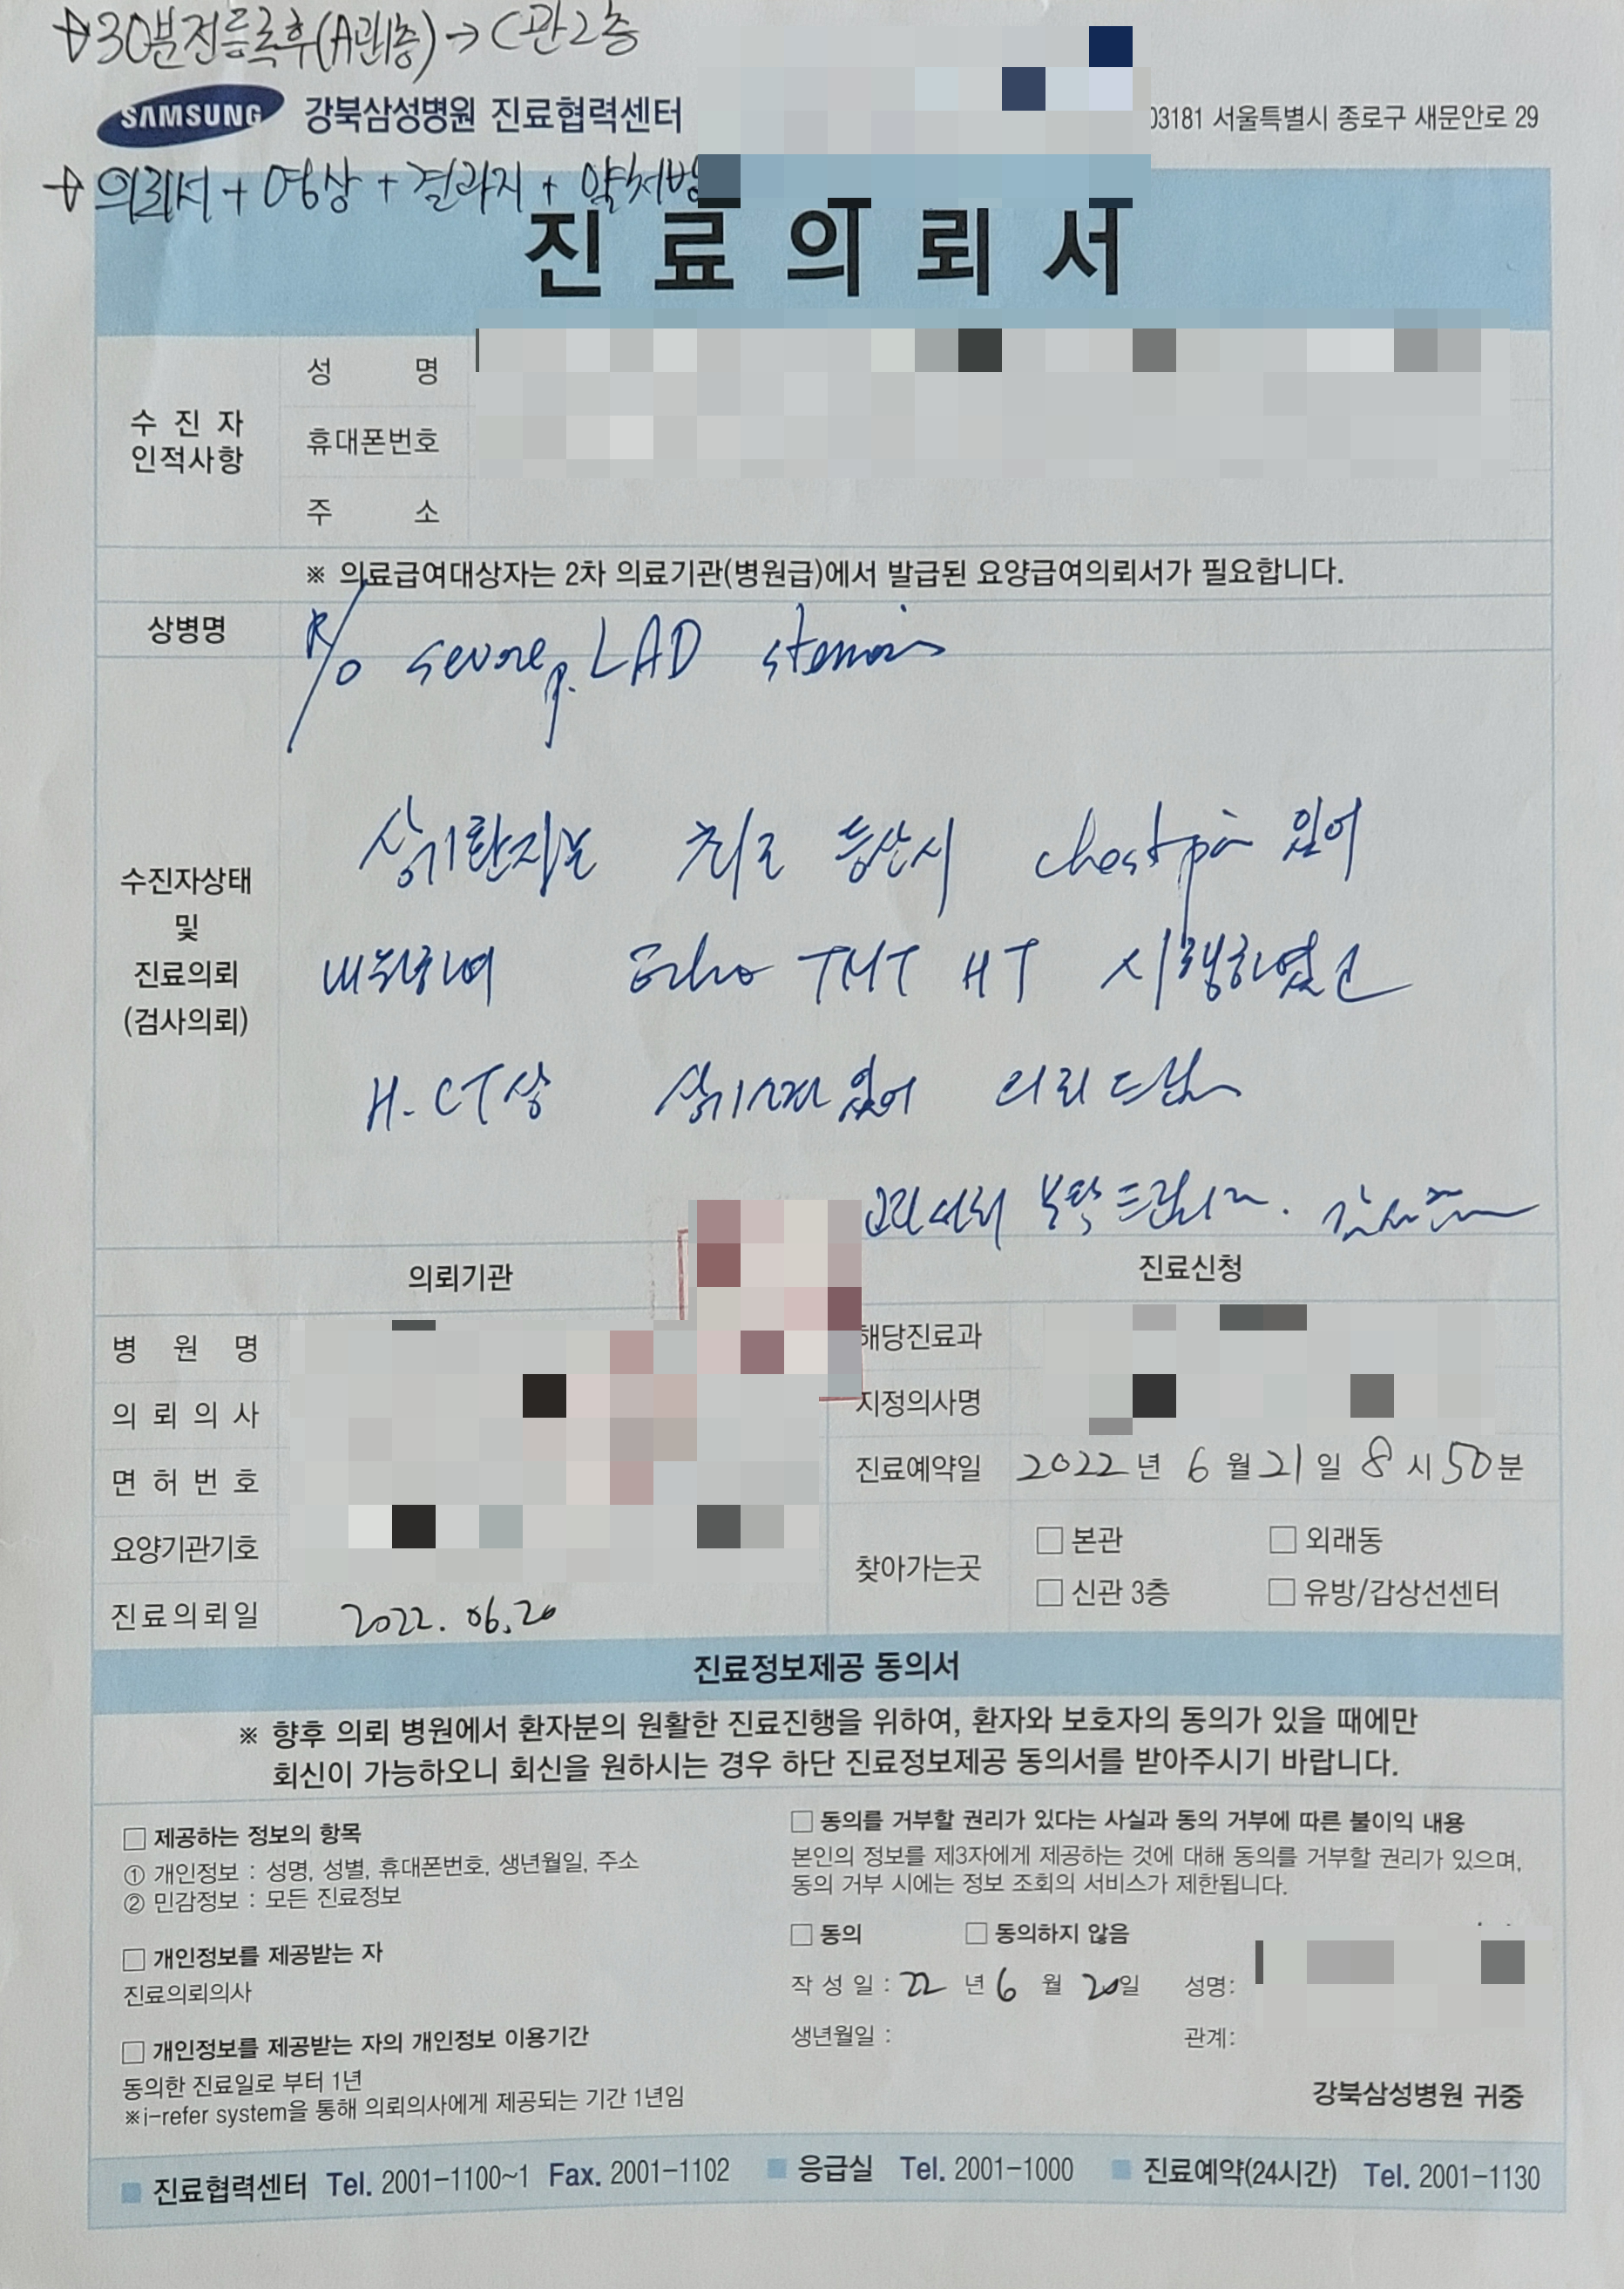 →30분전등록후(A관1층)→C관2층
SAMSUNG 강북삼성병원 진료협력센터
03181 서울특별시 종로구 새문안로 29
→의뢰서+영상+결과지+약처방
진료의뢰서
수진자 인적사항
성 명
휴대폰번호
주 소
※ 의료급여대상자는 2차 의료기관(병원급)에서 발급된 요양급여의뢰서가 필요합니다.
상병명
R/O severe p. LAD stenosis
수진자상태
및
진료의뢰
(검사의뢰)
상기환자분 최근 등산시 chest pain 있어
내원하여 Echo TMT HT 시행하였고
H-CT상 상기소견 있어 의뢰드림
고진선처 부탁드립니다.
의뢰기관
진료신청
병 원 명
의 뢰 의 사
면 허 번 호
요양기관기호
진료의뢰일 2022.06.20
해당진료과
지정의사명
진료예약일 2022년 6월 21일 8시 50분
찾아가는곳
□ 본관 □ 외래동
□ 신관 3층 □ 유방/갑상선센터
진료정보제공 동의서
※ 향후 의뢰 병원에서 환자분의 원활한 진료진행을 위하여, 환자와 보호자의 동의가 있을 때에만
회신이 가능하오니 회신을 원하시는 경우 하단 진료정보제공 동의서를 받아주시기 바랍니다.
□ 제공하는 정보의 항목
① 개인정보 : 성명, 성별, 휴대폰번호, 생년월일, 주소
② 민감정보 : 모든 진료정보
□ 개인정보를 제공받는 자
진료의뢰의사
□ 개인정보를 제공받는 자의 개인정보 이용기간
동의한 진료일로 부터 1년
※i-refer system을 통해 의뢰의사에게 제공되는 기간 1년임
□ 동의를 거부할 권리가 있다는 사실과 동의 거부에 따른 불이익 내용
본인의 정보를 제3자에게 제공하는 것에 대해 동의를 거부할 권리가 있으며,
동의 거부 시에는 정보 조회의 서비스가 제한됩니다.
□ 동의 □ 동의하지 않음
작 성 일 : 22년 6월 20일 성명:
생년월일 : 관계:
강북삼성병원 귀중
■ 진료협력센터 Tel. 2001-1100~1 Fax. 2001-1102 ■ 응급실 Tel. 2001-1000 ■ 진료예약(24시간) Tel. 2001-1130